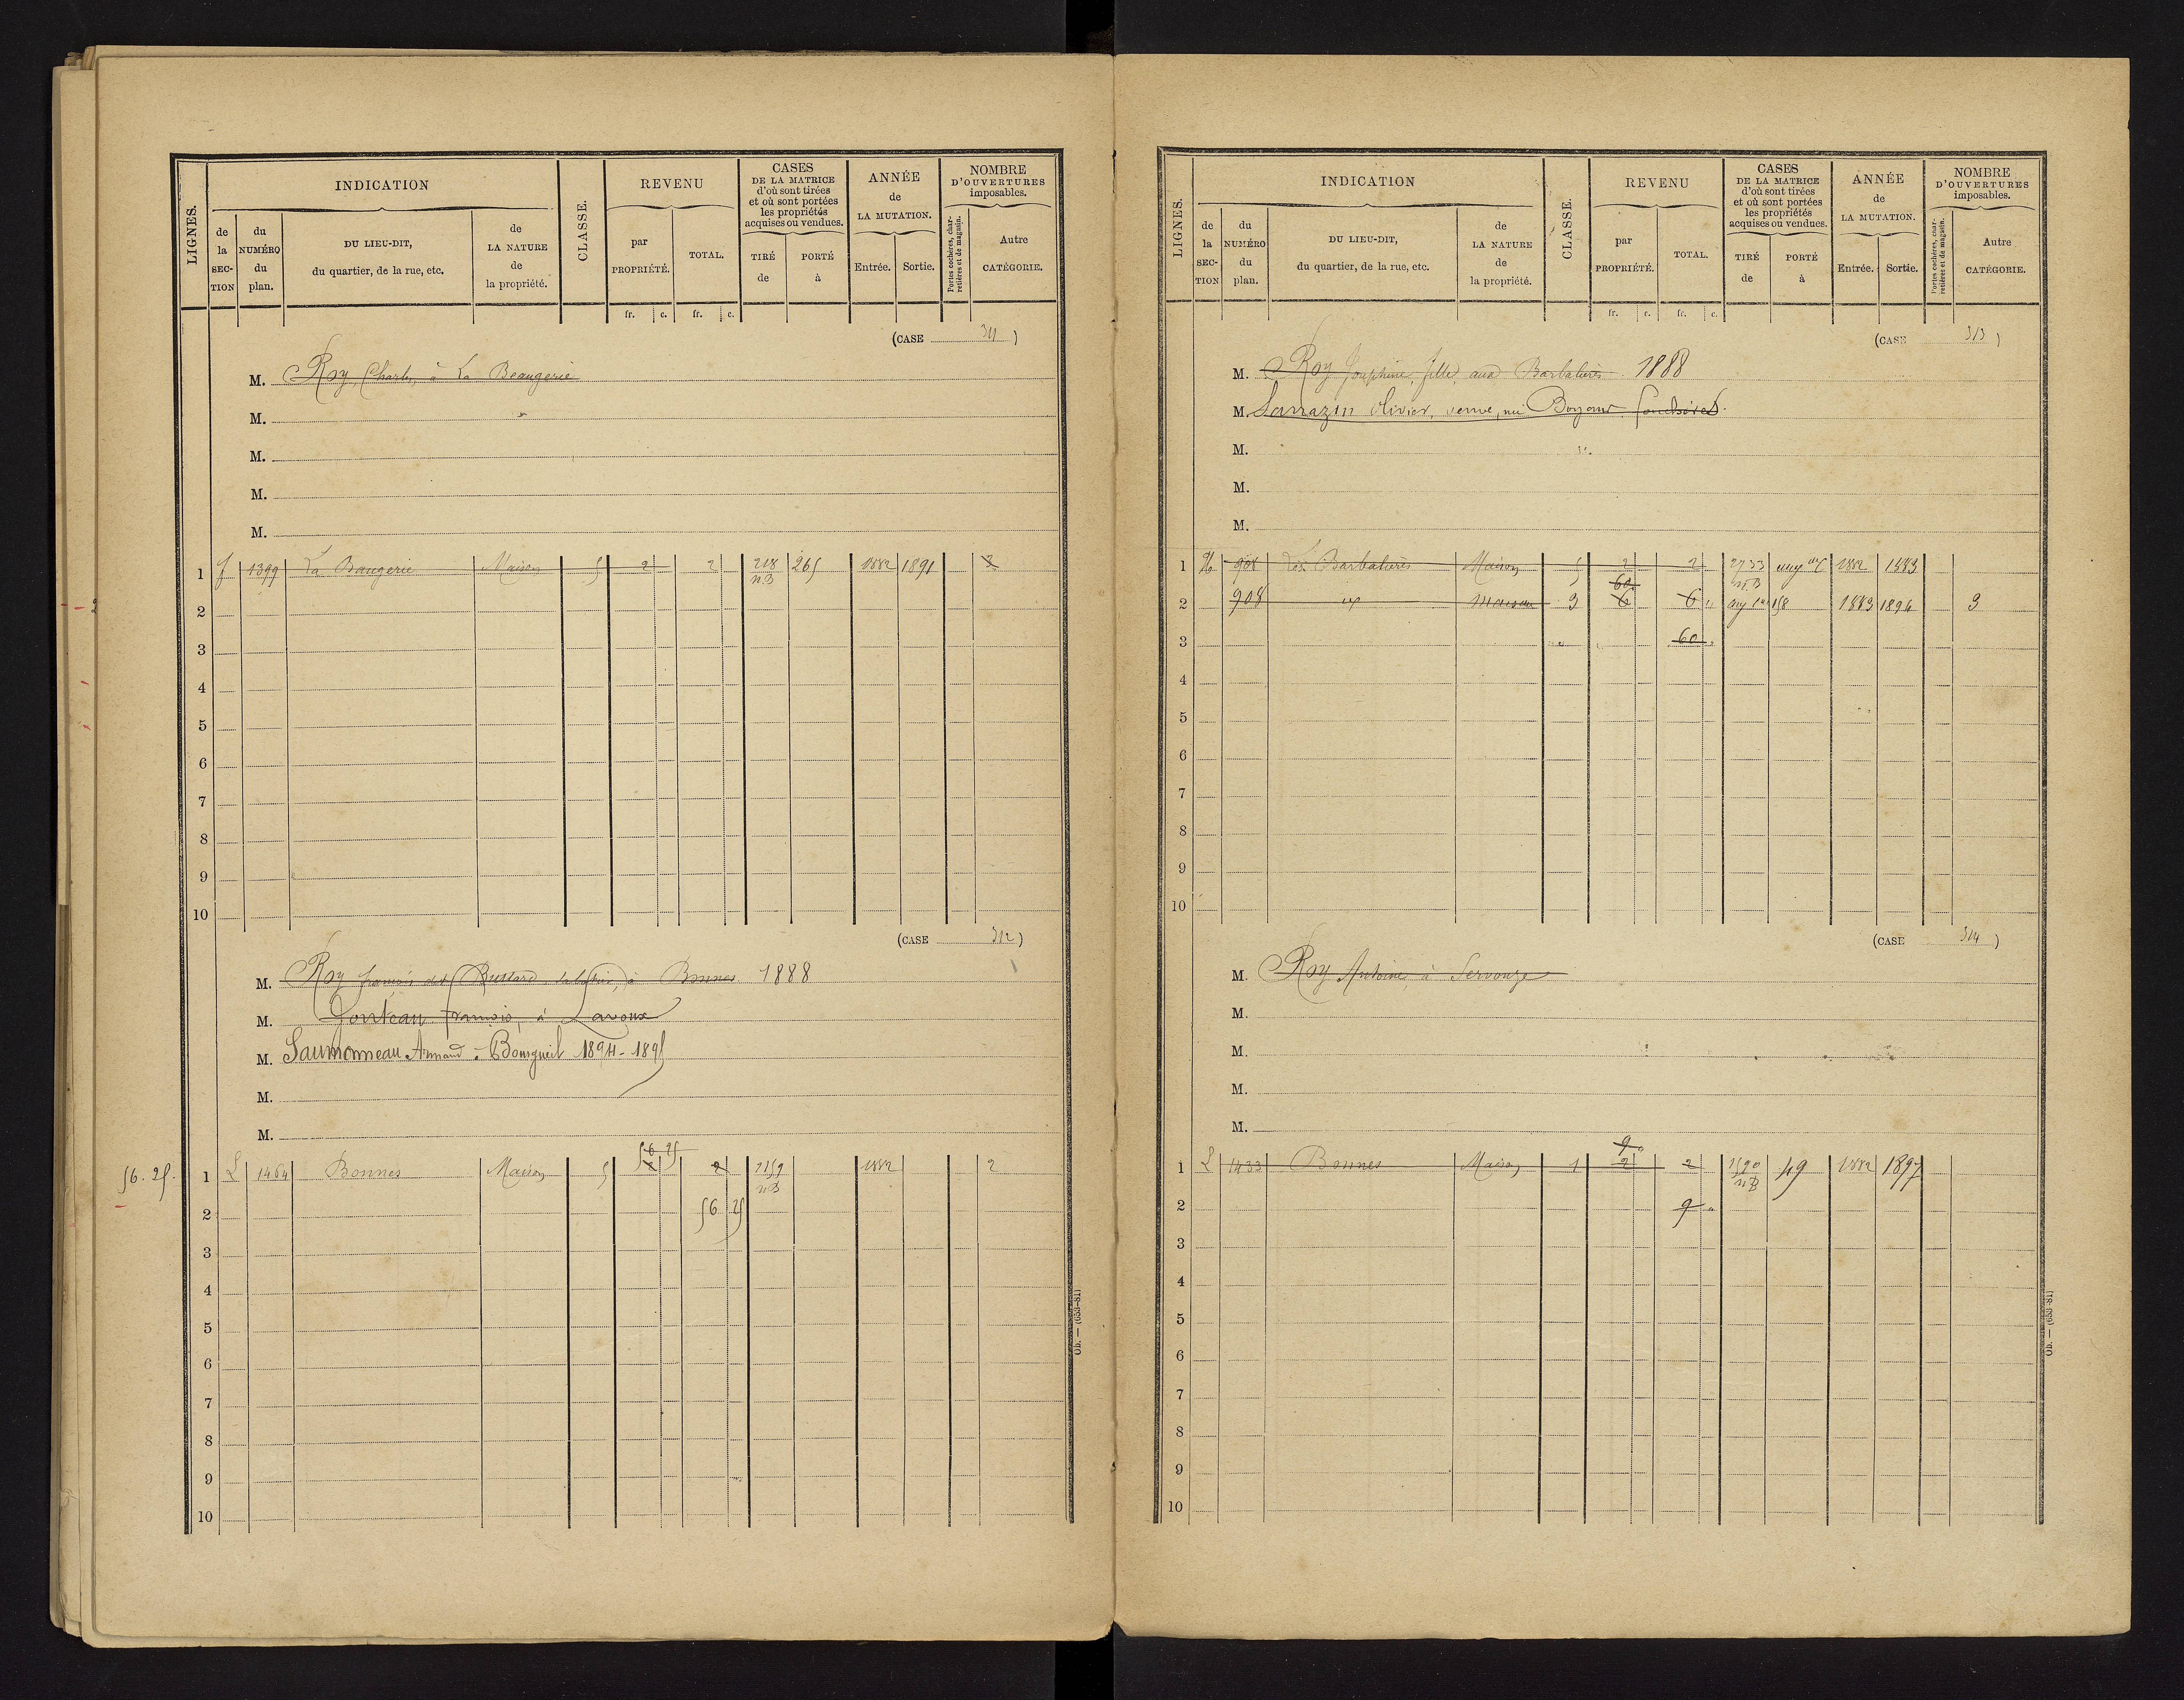 LIGNES.
INDICATION
de la SECTION
du NUMÉRO du plan.
DU LIEU-DIT, du quartier, de la rue, etc.
de LA NATURE de la propriété.
CLASSE.
REVENU
par PROPRIÉTÉ.
TOTAL.
CASES DE LA MATRICE d'où sont tirées et où sont portées les propriétés acquises ou vendues.
TIRÉ de
PORTÉ à
ANNÉE de LA MUTATION.
Entrée.
Sortie.
NOMBRE D'OUVERTURES imposables.
Portes cochères, charretières et de magasin.
Autre CATÉGORIE.
fr. c. fr. c.
(CASE 311)
M. Roy Charles, à La Beaugerie
M.
M.
M.
M.
1 f 1399 La Baugerie Maison 5 2 2 218 265 1882 1891 2
n.B
2
3
4
5
6
7
8
9
10
(CASE 312)
M. Roy françois dit Bussard à Bonnes 1888
M. Gonteau françois, à Lavoux
M. Saumonneau Armand - Bourgueil 1894-1895
M.
M.
56 25
56.25. 1 L 1464 Bonnes Maison 5 2 2 2159 1882 2
n.B
2 56 25
3
4
5
6
7
8
9
10
Ob. — (653-81)
LIGNES.
INDICATION
de la SECTION
du NUMÉRO du plan.
DU LIEU-DIT, du quartier, de la rue, etc.
de LA NATURE de la propriété.
CLASSE.
REVENU
par PROPRIÉTÉ.
TOTAL.
CASES DE LA MATRICE d'où sont tirées et où sont portées les propriétés acquises ou vendues.
TIRÉ de
PORTÉ à
ANNÉE de LA MUTATION.
Entrée.
Sortie.
NOMBRE D'OUVERTURES imposables.
Portes cochères, charretières et de magasin.
Autre CATÉGORIE.
fr. c. fr. c.
(CASE 313)
M. Roy Joséphine, fille, aux Barbalières 1888
M. Sarrazin Olivier, veuve, née
M.
M.
M.
1 908 Les Barbalières Maison 5 2 2 2733 1882 1883
n.B
60
2 908 Maison 3 6 6 158 1883 1896 3
3 60
4
5
6
7
8
9
10
(CASE 314)
M. Roy Antoine, à Servouze
M.
M.
M.
M.
9
1 L 1433 Bonnes Maison 1 2 2 1520 49 1882 1897
n.B
2 9
3
4
5
6
7
8
9
10
Ob. — (653-81)